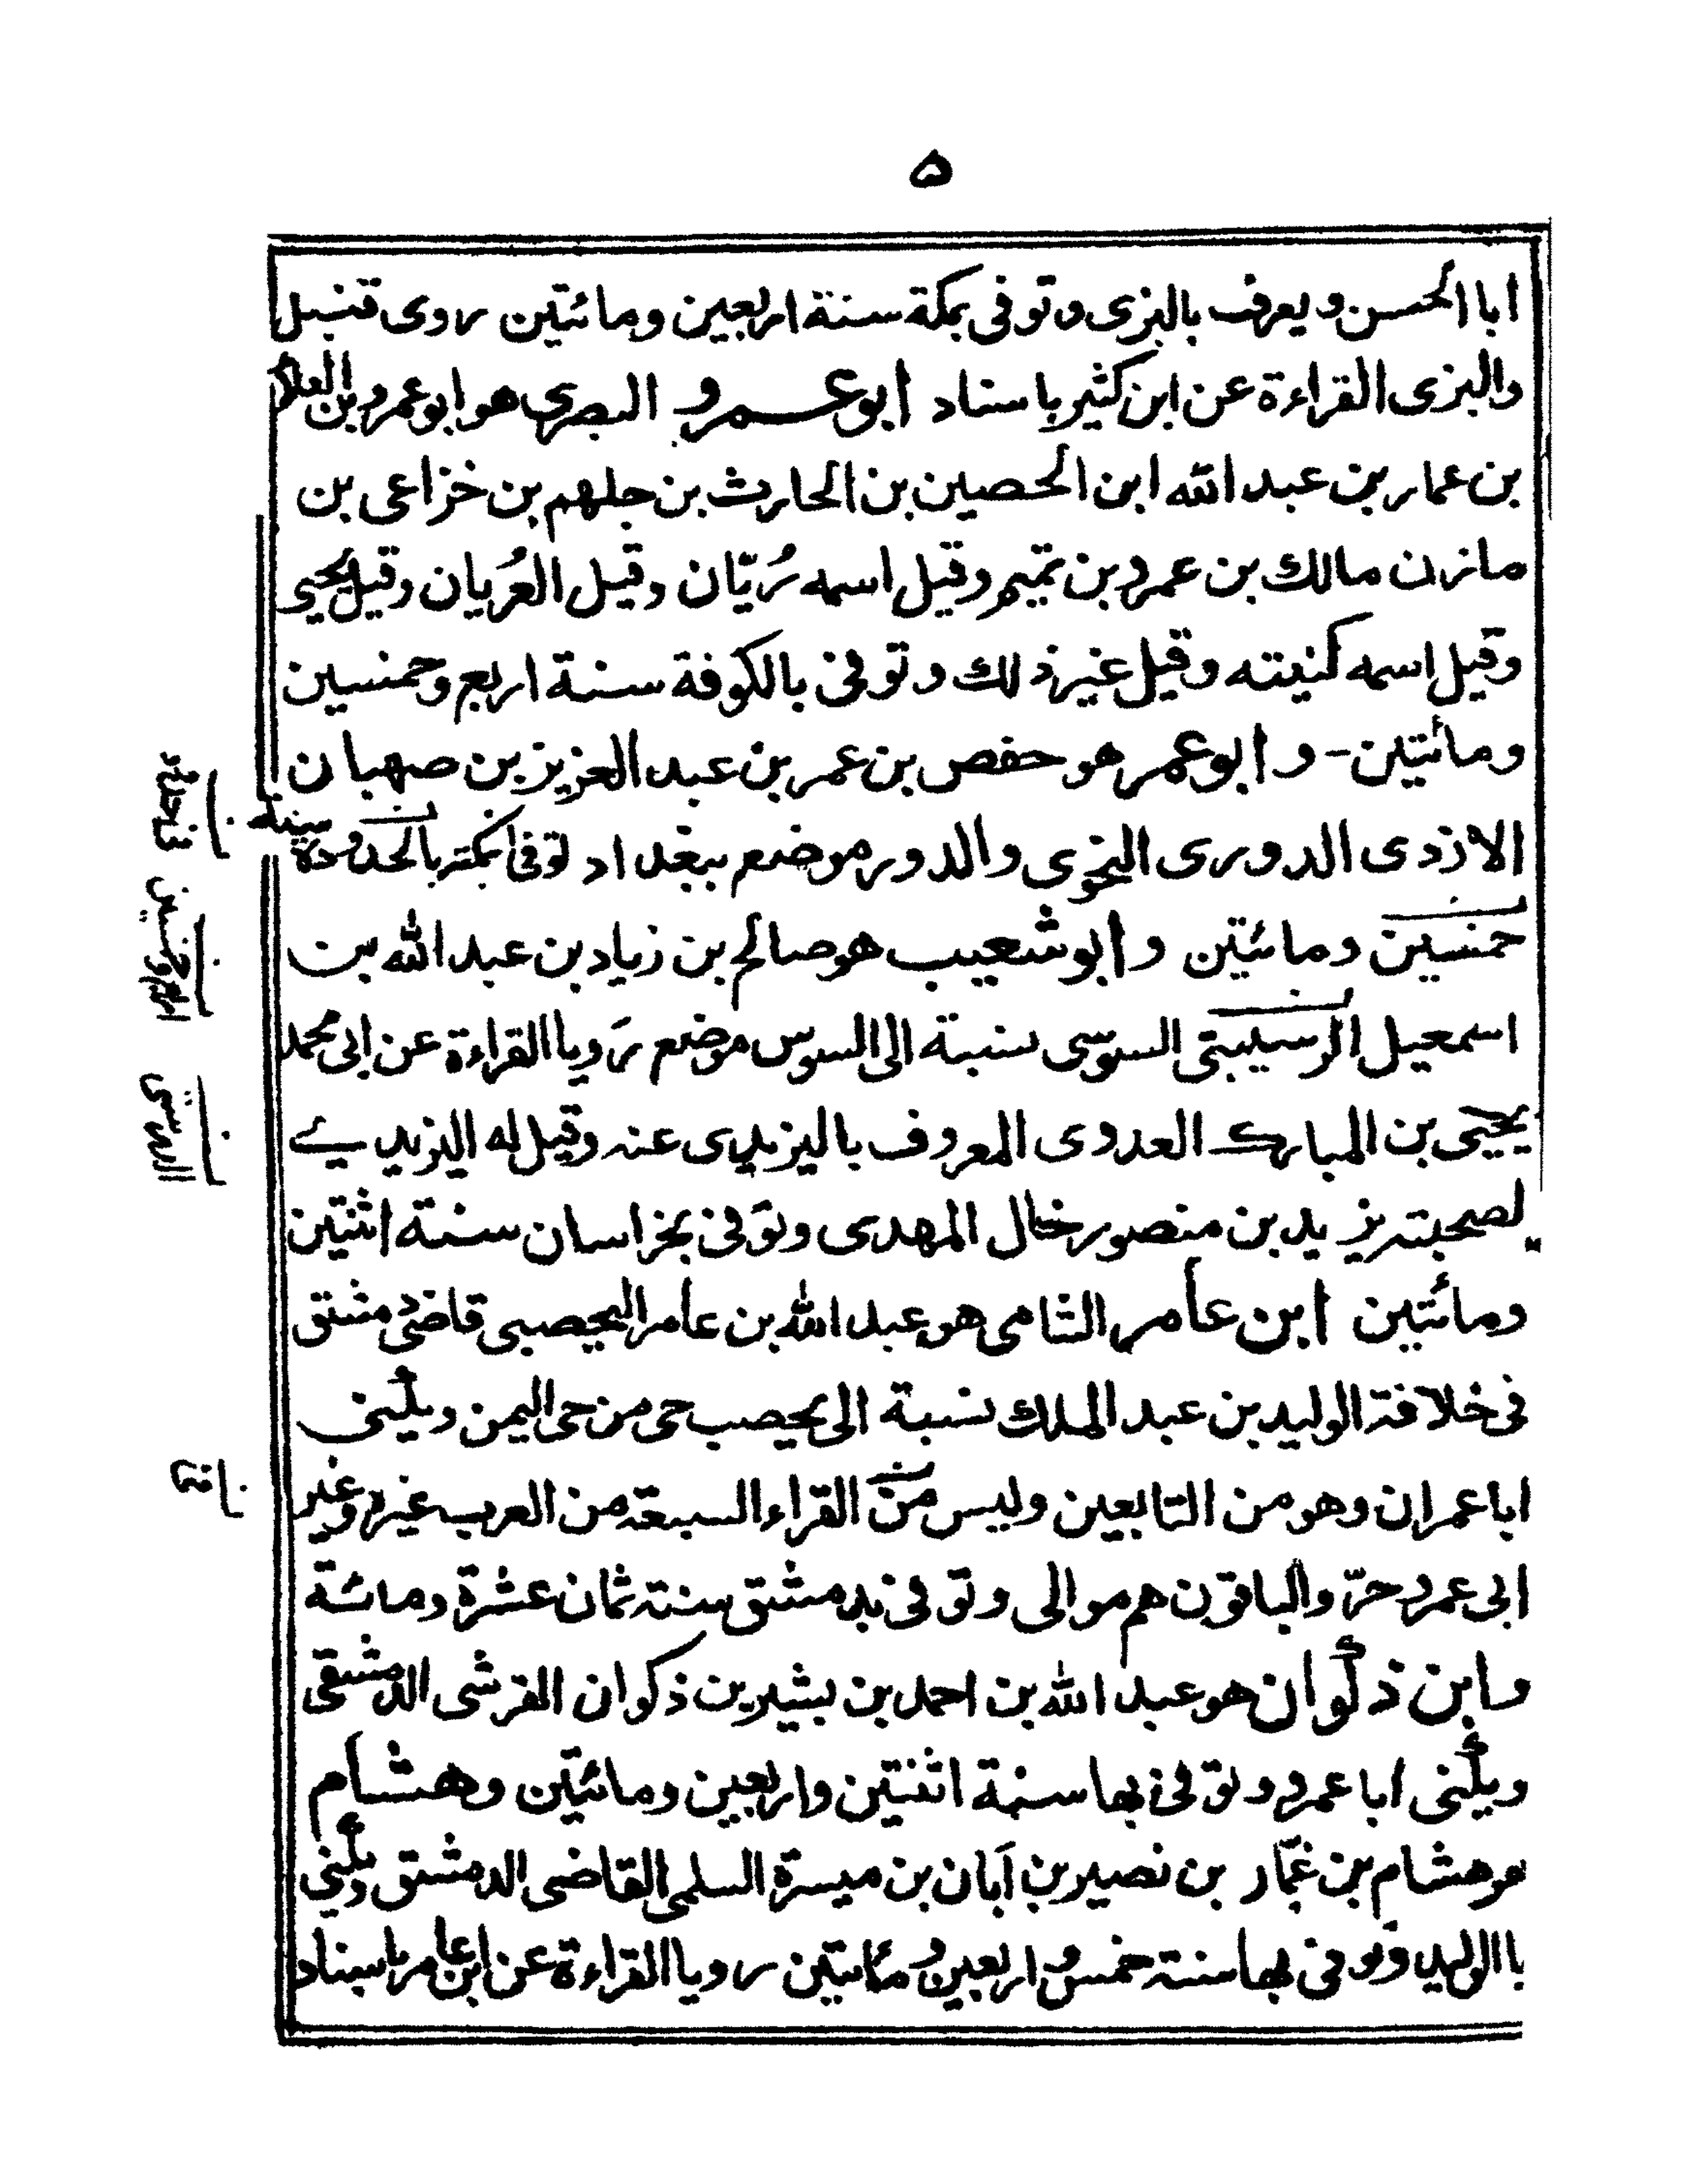 ۵
ابا الحسن ويعرف بالبزى وتوفى بمكة سنة اربعين ومائتين روى قنبل
والبزى القراءة عن ابن كثير باسناد ابو عمرو البصرى هو ابو عمرو بن العلاء
بن عمار بن عبد الله ابن الحصين بن الحارث بن جلهم بن خزاعى بن
مازن مالك بن عمرو بن تميم وقيل اسمه رُيّان وقيل العُريان وقيل يحيى
وقيل اسمه كنيته وقيل غير ذلك وتوفى بالكوفة سنة اربع وخمسين
ومائتين - و ابو عمر هو حفص بن عمر بن عبد العزيز بن صهبان
الازدى الدورى النحوى والدور موضع ببغداد توفى بمكة سنة
خمسين ومائتين و ابو شعيب هو صالح بن زياد بن عبد الله بن
اسمعيل السوسى نسبة الى السوس موضع رَويا القراءة عن ابى محمد
يحيى بن المبارك العدوى المعروف باليزيدى عنه وقيل له اليزيدى
لصحبته يزيد بن منصور خال المهدى وتوفى بخراسان سنة اثنتين
ومائتين ابن عامر الشامى هو عبد الله بن عامر اليحصبى قاضى دمشق
فى خلافة الوليد بن عبد الملك نسبة الى يحصب حى من حى اليمن ويكنى
ابا عمران وهو من التابعين وليس من القراء السبعة من العرب غيره وغير
ابى عمرو حرّ والباقون هم موالى وتوفى بدمشق سنة ثمان عشرة ومائة
وابن ذكوان هو عبد الله بن احمد بن بشير بن ذكوان القرشى الدمشقى
ويكنى ابا عمرو وتوفى بها سنة اثنتين واربعين ومائتين وهشام
هو هشام بن عمّار بن نصير بن اَبان بن ميسرة السلمى القاضى الدمشقى ويكنى
با الوليد وتوفى بها سنة خمس واربعين ومئاتين رويا القراءة عن ابن عامر باسناد